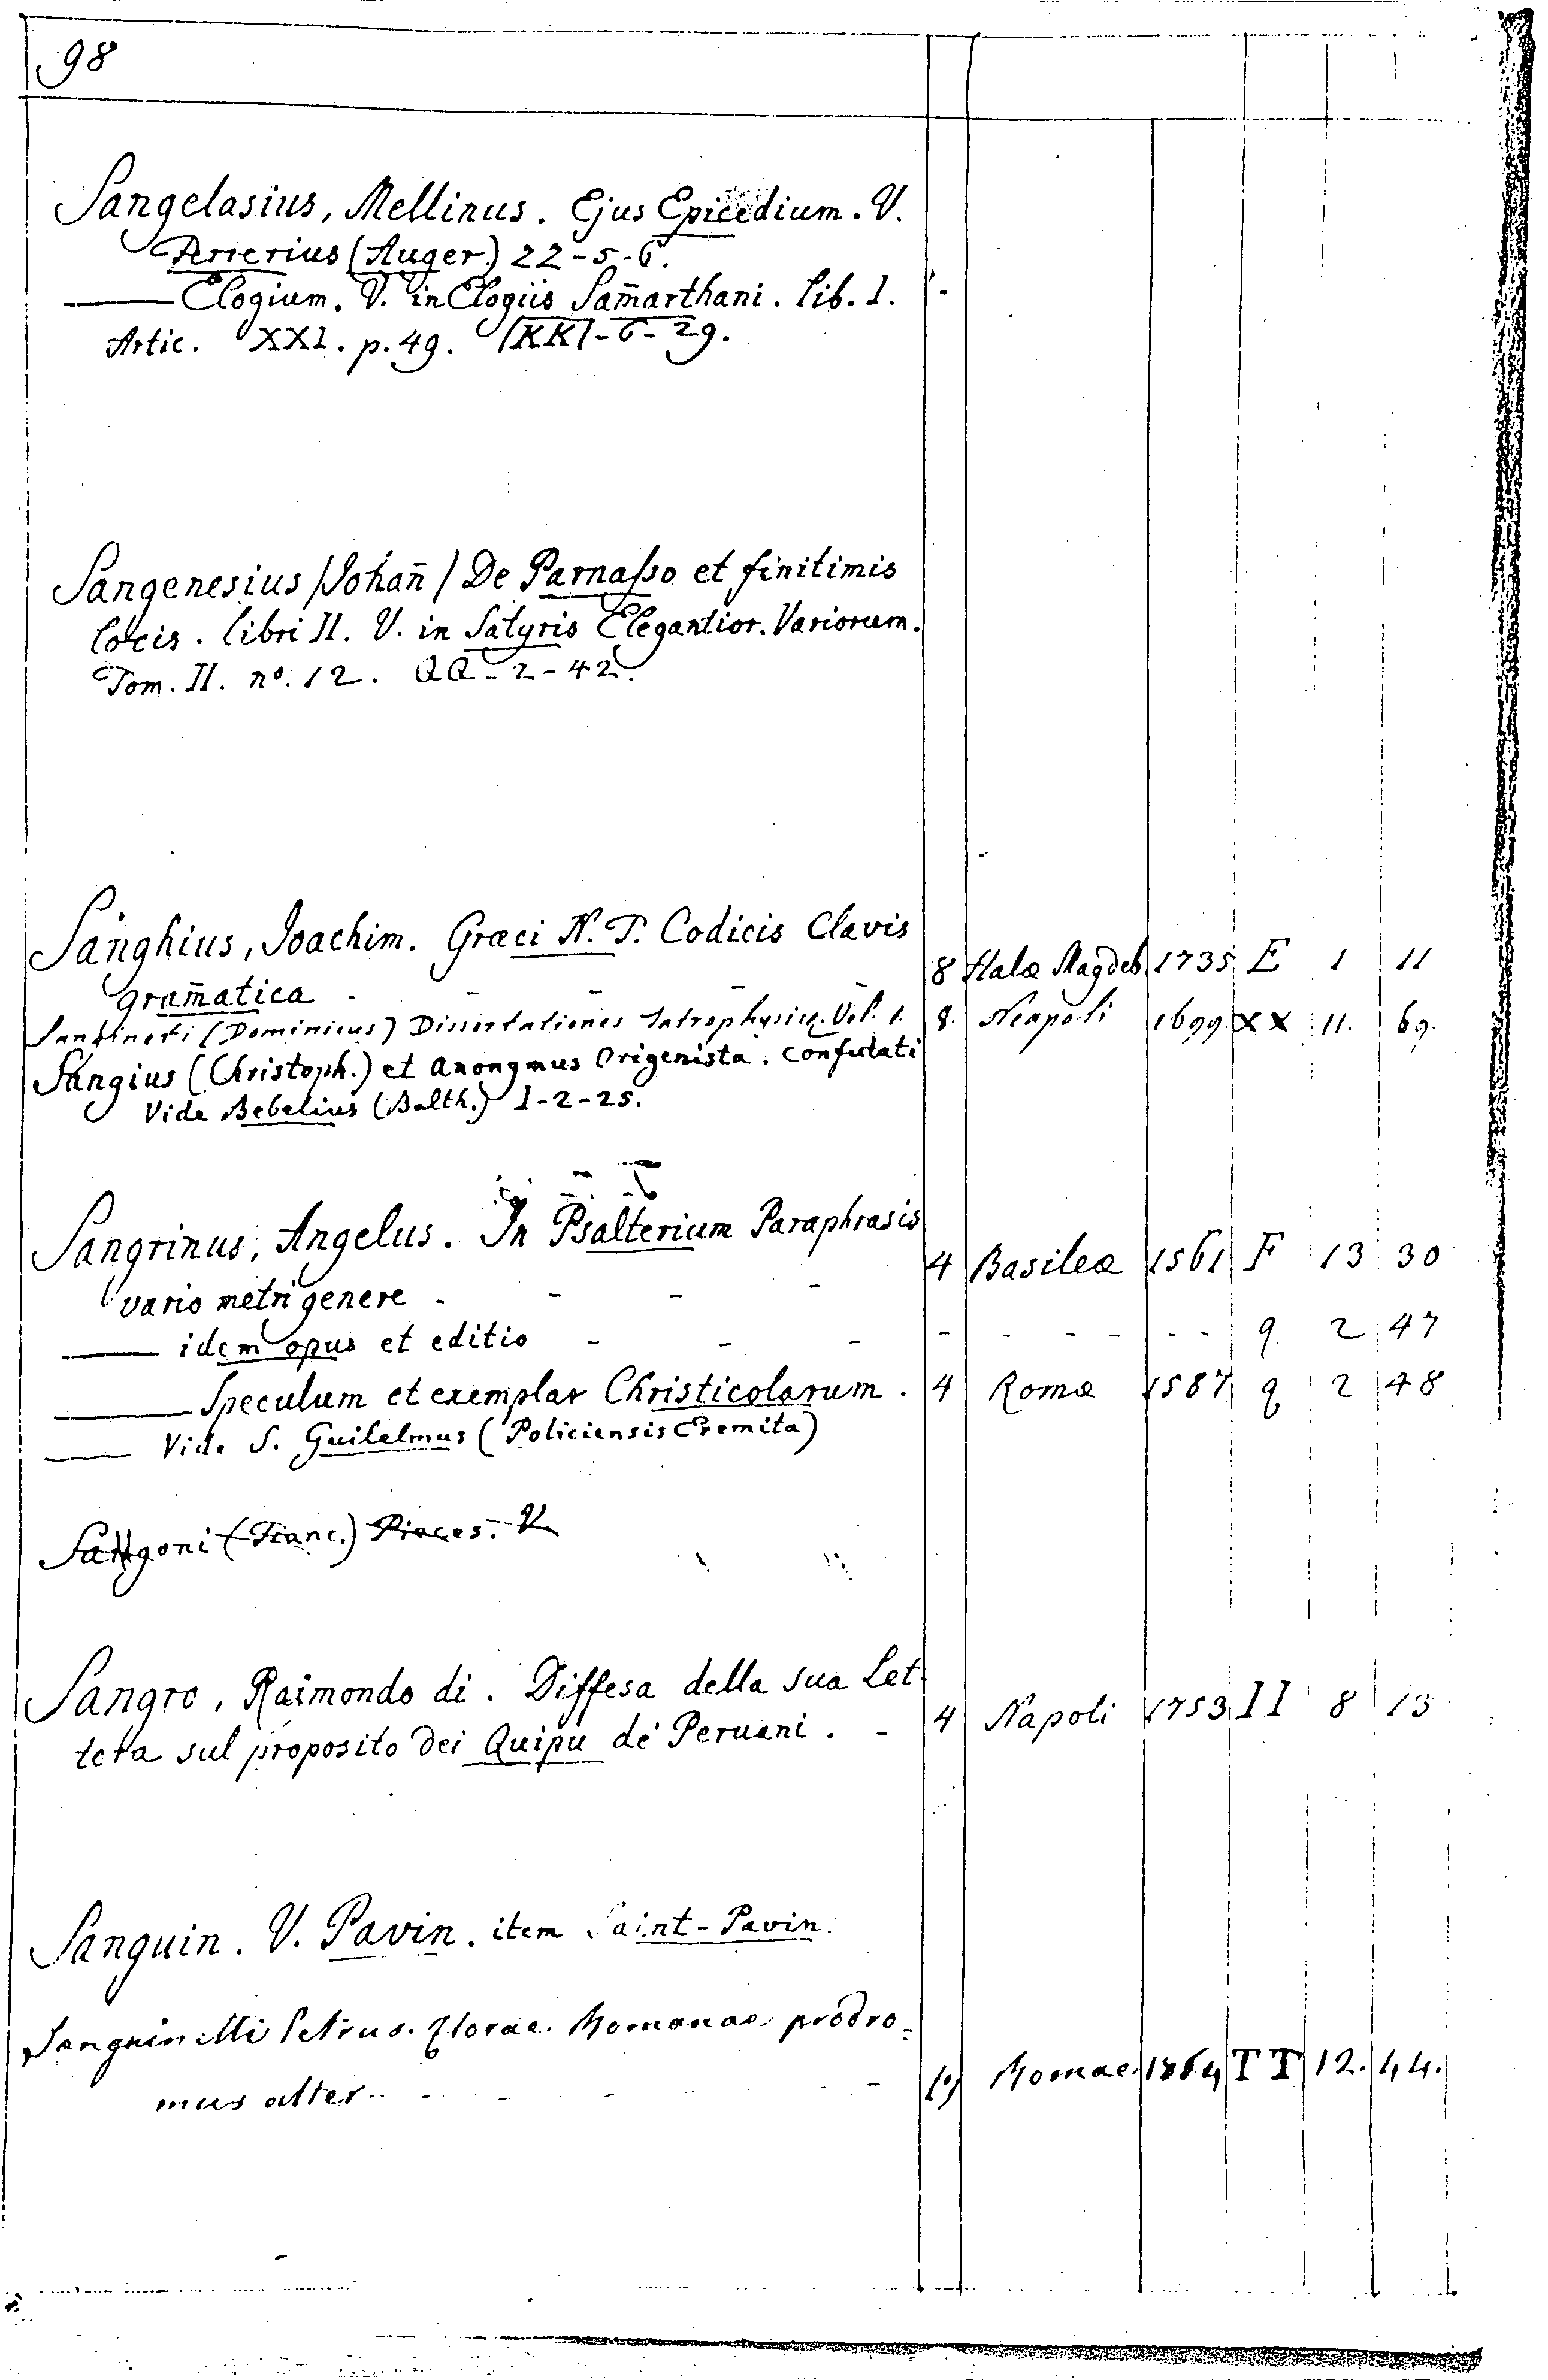 98
Sangelasius, Mellinus. Ejus Epicedium. V.
Ferrerius (Auger.) 22-5-6.
—— Elogium. V. in Elogiis Sam̄arthani. Lib. I.
Artic. XXI. p. 49. KK-6-29.
Sangenesius /Johan̄/ De Parnasso et finitimis
locis. libri II. V. in Satyris Elegantior. Variorum.
Tom. II. no. 12. QQ-2-42.
Sanghius, Joachim. Græci N. T. Codicis Clavis
gram̄atica - - - - 8 Halæ Magdeb 1735 E 1 11
(Dominicus) Dissertationes Iatrophysicæ. Vol. 1. 8. Neapoli 1699 XX 11. 69.
Sangius (Christoph.) et Anonymus Origenista. Confutati
Vide Bebelius (Balth.) I-2-25.
Sangrinus, Angelus. In Psalterium Paraphrasis
vario metri genere - - - - 4 Basileæ 1561 F 13 30
—— idem opus et editio - - - - - - - - - q 2 47
—— Speculum et exemplar Christicolarum. 4 Romæ 1587 q 2 48
—— Vide S. Guilelmus (Policiensis Eremita)
Sangoni (Franc.) Pieces. V.
Sangro, Raimondo di. Diffesa della sua Let-
tera sul proposito dei Quipu de' Peruani. - 4 Napoli 1753 II 8 13
Sanguin. V. Pavin. item Saint-Pavin.
Sanguinetti Petrus. Florae Romanae prodro-
mus alter - - - - Romae. 1864 TT 12. 44.